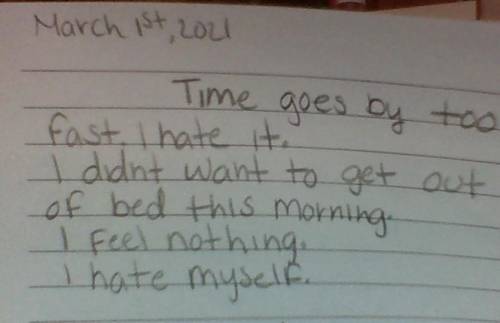 March 1st, 2021
Time goes by too
fast. I hate it.
I didnt want to get out
of bed this morning.
I feel nothing.
I hate myself.